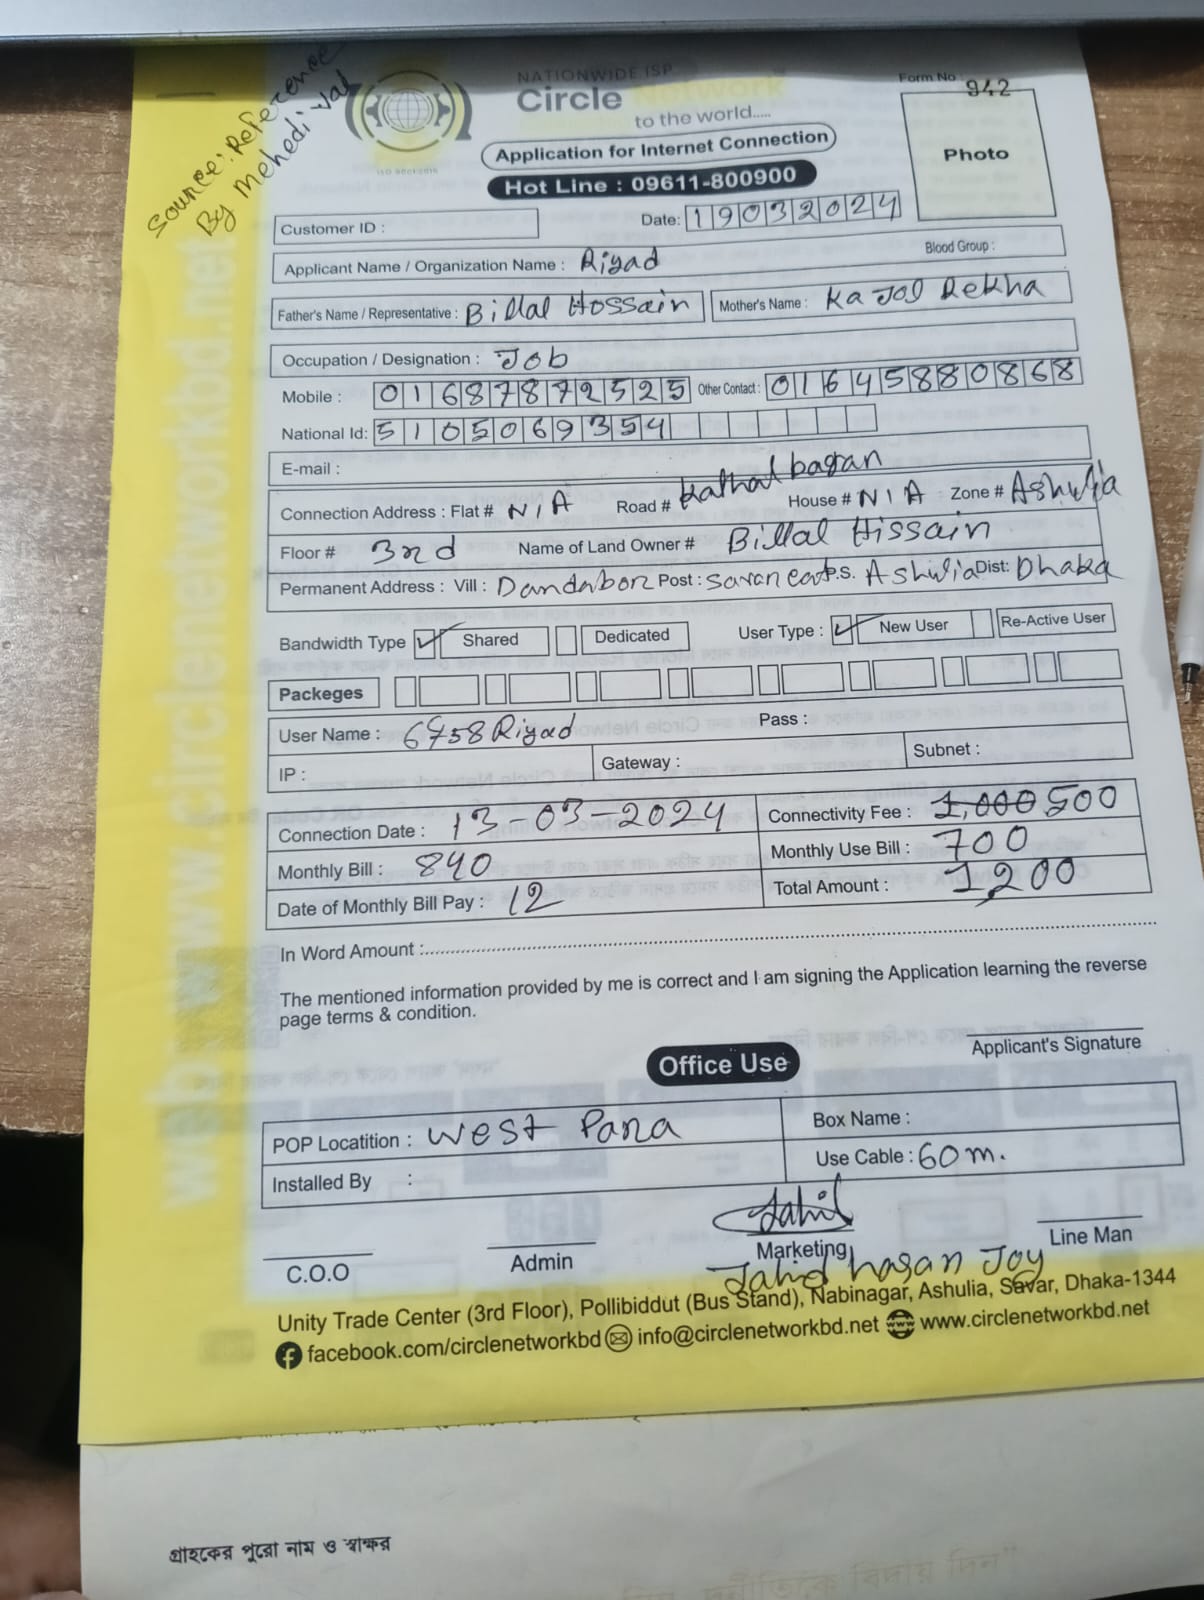 Source: Reference
By Mehedi vai
NATIONWIDE ISP
Circle Network
to the world.....
Form No : 942
Application for Internet Connection
Hot Line : 09611-800900
Photo
ISO 9001:2015
Customer ID :
Date: 19032024
Applicant Name / Organization Name : Riyad Blood Group :
Father's Name / Representative : Billal Hossain Mother's Name : Kajol Rekha
Occupation / Designation : Job
Mobile : 01687872525 Other Contact : 01645880868
National Id: 5105069354
E-mail :
Connection Address : Flat # N/A Road # Kathal bagan House # N/A Zone # Ashulia
Floor # 3rd Name of Land Owner # Billal Hissain
Permanent Address : Vill : Dandabor Post : Savar cant P.S. Ashulia Dist: Dhaka
Bandwidth Type Shared Dedicated User Type : New User Re-Active User
Packeges
User Name : 6758Riyad Pass :
IP : Gateway : Subnet :
Connection Date : 13-03-2024 Connectivity Fee : 1,000 500
Monthly Bill : 840 Monthly Use Bill : 700
Date of Monthly Bill Pay : 12 Total Amount : 1,200
In Word Amount :
The mentioned information provided by me is correct and I am signing the Application learning the reverse
page terms & condition.
Applicant's Signature
Office Use
POP Locatition : West Para Box Name :
Installed By : Use Cable : 60m.
C.O.O Admin Marketing Line Man
Jahid hasan Joy
Unity Trade Center (3rd Floor), Pollibiddut (Bus Stand), Nabinagar, Ashulia, Savar, Dhaka-1344
facebook.com/circlenetworkbd info@circlenetworkbd.net www.circlenetworkbd.net
web: www.circlenetworkbd.net
গ্রাহকের পুরো নাম ও স্বাক্ষর